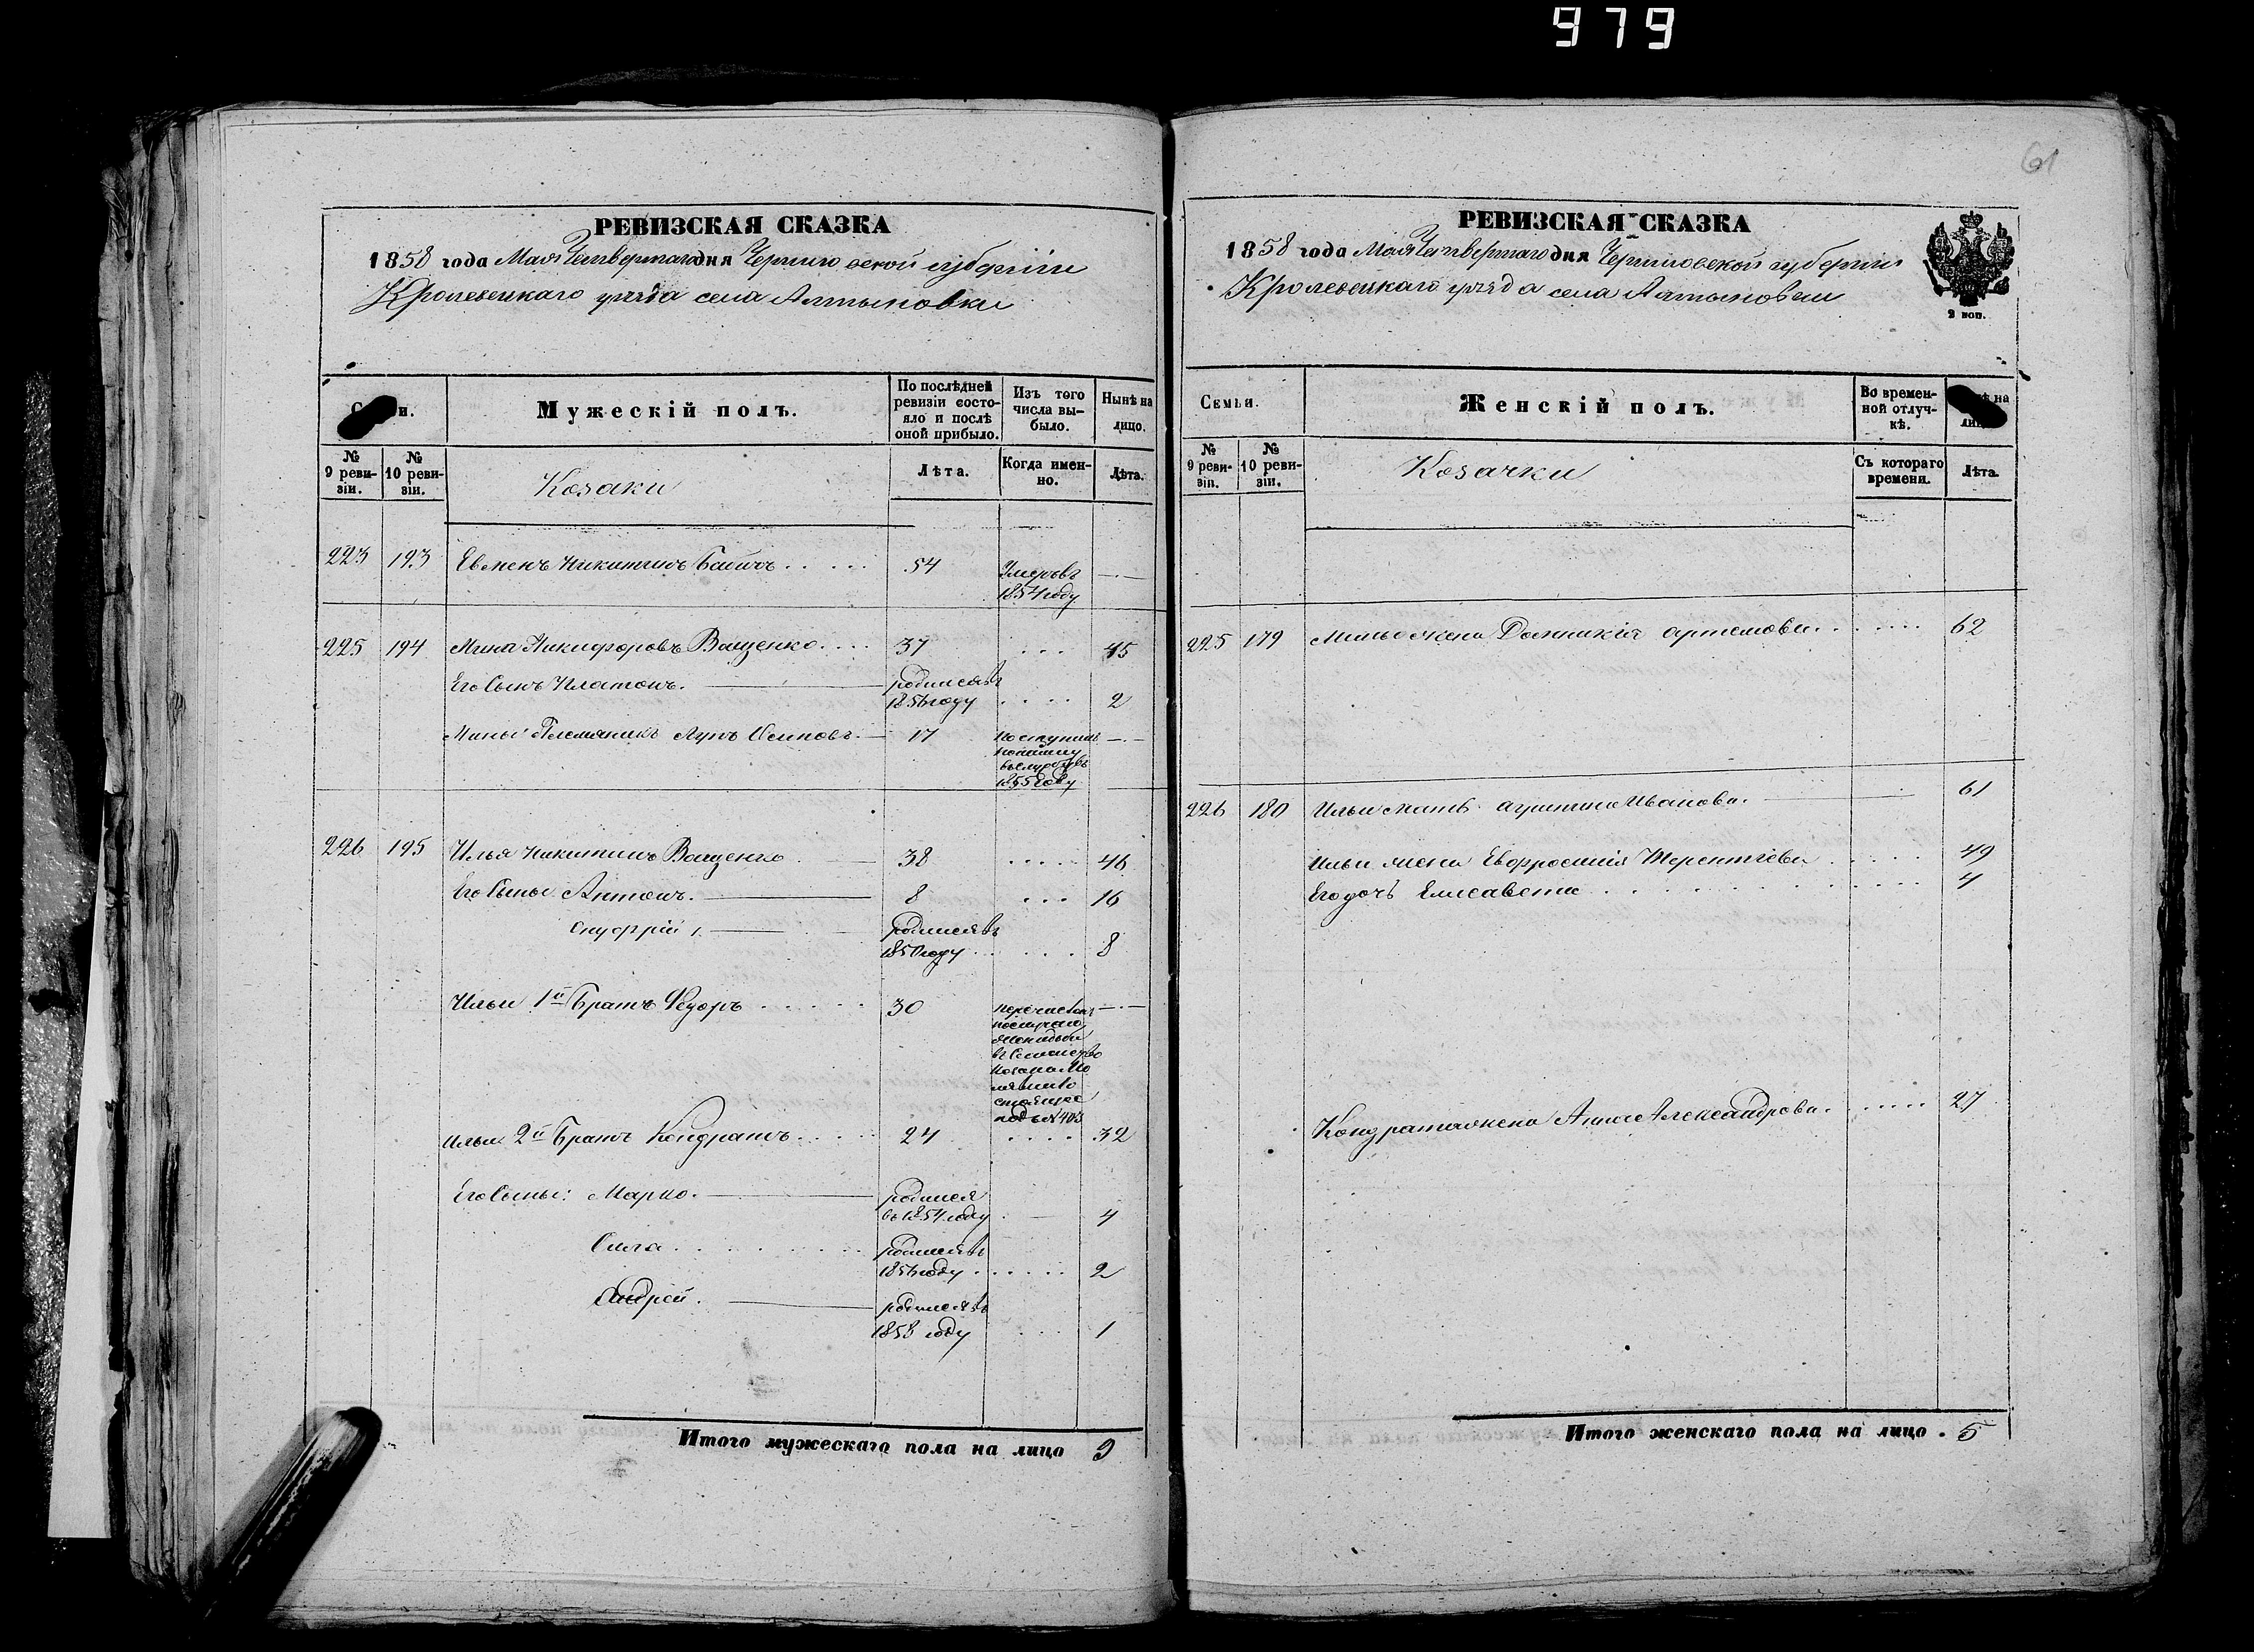 979
61
РЕВИЗСКАЯ СКАЗКА
1858 года Мая Четвертаго дня Черниговской губернiи
Кролевецкаго уѣзда села Алтыновки
Мужескiй полъ.
По послѣдней ревизiи состояло и послѣ оной прибыло.
Изъ того числа выбыло.
Нынѣ на лицо.
№ 9 ревизiи.
№ 10 ревизiи.
Козаки
Лѣта.
Когда именно.
Лѣта.
223 193 Евменъ Никитинъ Бабичъ . . . . . 54 Умеръ въ 1854 году — . —
225 194 Мина Никифоровъ Ващенко . . . . 37 . . . 45
Его Сынъ Платонъ. родился въ 1856 году . . . . 2
Мины Племяникъ Лупъ Осиповъ. 17 поступилъ в 1855 году — . —
226 195 Илья Никитинъ Ващенко 38 . . . . . 46
Его Сыны Антонъ. 8 . . . 16
Онуфрiй родился въ 1850 году . . . . . . 8
Ильи 1й Братъ Федоръ . . . . . 30 перечисленъ в Семейство подъ № 403 — . —
Ильи 2й Братъ Кондратъ . . . . . 24 . . . . 32
Его Сыны: Марко. родился въ 1854 году 4
Сила . . . . . . . . родился въ 1856 году . . . . . . 2
Андрей. родился въ 1858 году . . . . 1
Итого мужескаго пола на лицо 9
РЕВИЗСКАЯ СКАЗКА
1858 года Мая Четвертаго дня Черниговской губернiи
Кролевецкаго уѣзда села Алтыновки
2 коп.
Семьи.
Женскiй полъ.
Во временной отлучкѣ.
№ 9 ревизiи.
№ 10 ревизiи.
Козачки
Съ котораго времени.
Лѣта.
225 179 Мины жена Домникiя Артемова . . . . . . 62
226 180 Ильи мать Агриппина Иванова. 61
Ильи жена Евфросинiя Терентiева . . . . . 49
Его дочь Елисавета . . . . . . . . . . 4
Кондрата жена Анна Александрова. . . . . . 27
Итого женскаго пола на лицо . 5